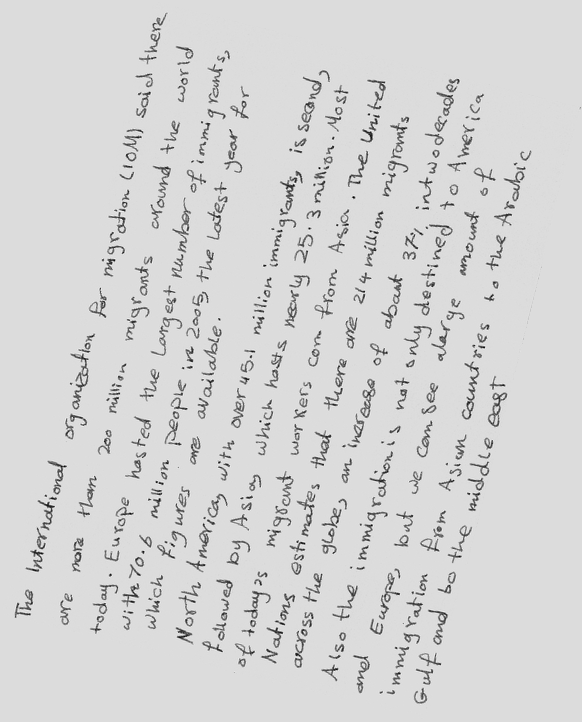 The International organization for migration (IOM) said there
are more than 200 million migrants around the world
today. Europe hosted the Largest number of immigrants,
with 70.6 million people in 2005, the Latest year for
which figures are available.
North America, with over 45.1 million immigrants, is second,
followed by Asia, which hosts nearly 25.3 million. Most
of today's migrant workers com from Asia. The United
Nations estimates that there are 214 million migrants
across the globe, an increase of about 37% in two decades
Also the immigration is not only destined to America
and Europe, but we can see alarge amount of
immigration from Asian countries to the Arabic
Gulf and to the middle east